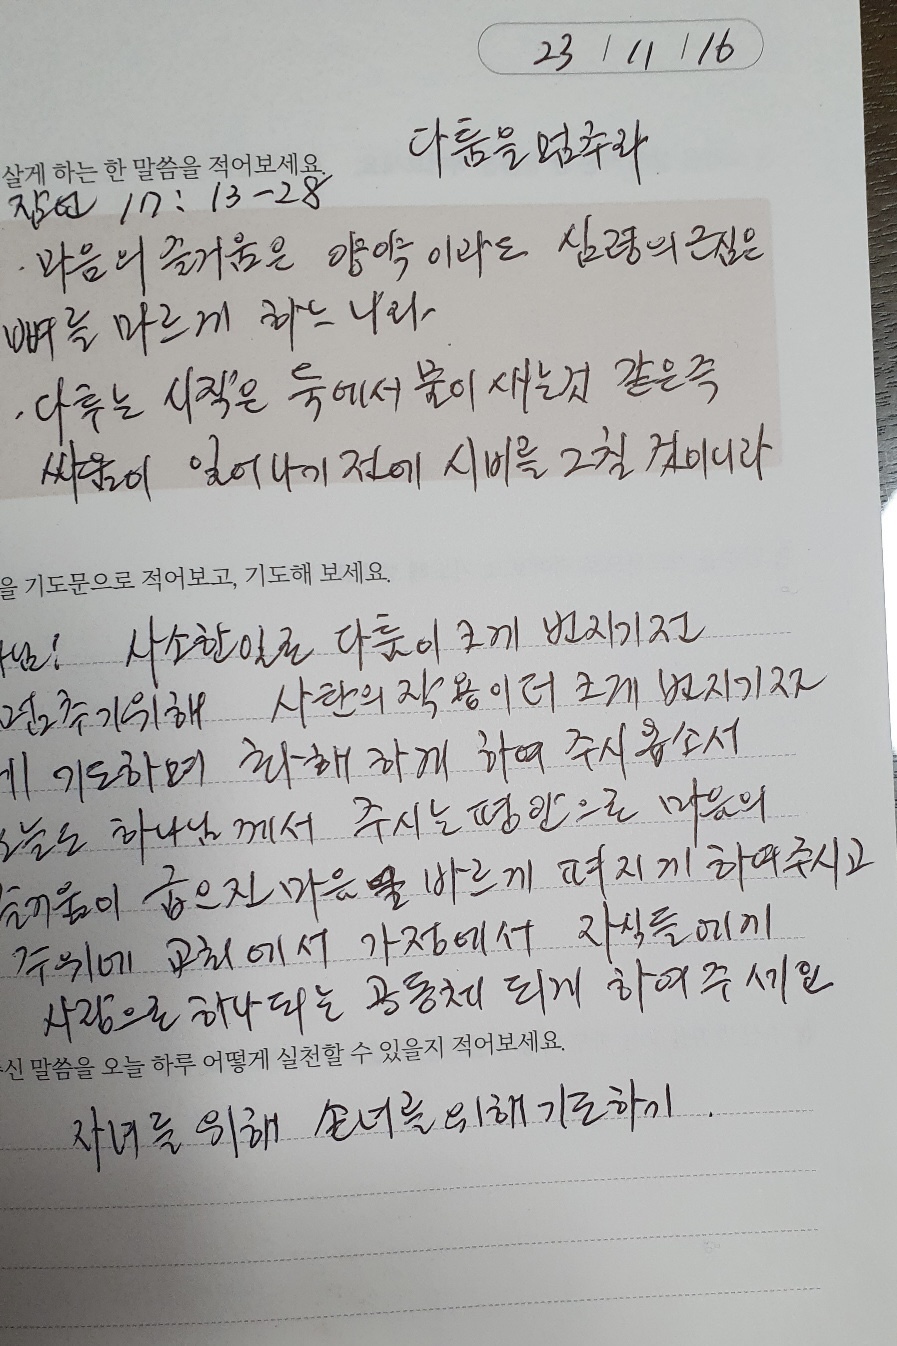 23 / 11 / 16
다툼을 멈추라
살게 하는 한 말씀을 적어보세요.
잠언 17: 13-28
· 마음의 즐거움은 양약이라도 심령의 근심은
뼈를 마르게 하느니라
· 다투는 시작은 둑에서 물이 새는것 같은즉
싸움이 일어나기 전에 시비를 그칠 것이니라
을 기도문으로 적어보고, 기도해 보세요.
님! 사소한일로 다툼이 크게 번지기전
멈추기위해 사탄의 작용이 더 크게 번지기전
기도하며 화해하게 하여 주시옵소서
오늘도 하나님께서 주시는 평안으로 마음의
즐거움이 굽으진 마음을 바르게 펴지게 하여주시고
주위에 교회에서 가정에서 자식들에게
사랑으로 하나되는 공동체 되게 하여주세요
주신 말씀을 오늘 하루 어떻게 실천할 수 있을지 적어보세요.
자녀를 위해 손녀를 위해 기도하기.